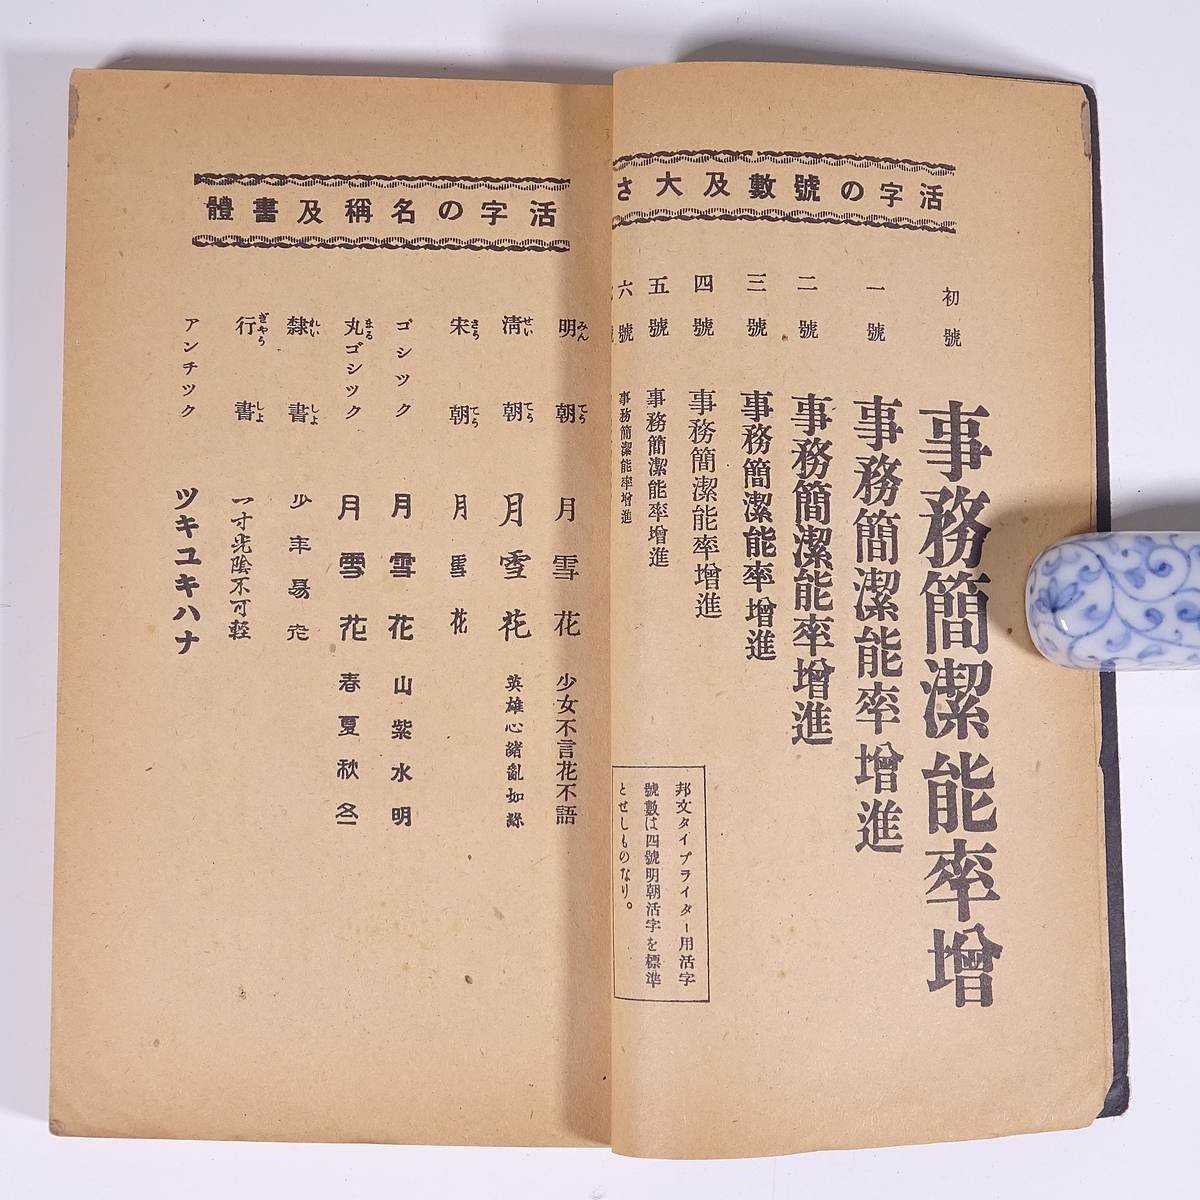 活字の號數及大さ
初號 事務簡潔能率增
一號 事務簡潔能率增進
二號 事務簡潔能率增進
三號 事務簡潔能率增進
四號 事務簡潔能率增進
五號 事務簡潔能率增進
六號 事務簡潔能率增進
邦文タイプライター用活字
號數は四號明朝活字を標準
とせしものなり。
活字の名稱及書體
みん てう
明朝 月雪花 少女不言花不語
せい てう
淸朝 月雪花 英雄心緖亂如絲
さう てう
宋朝 月雪花
ゴシツク 月雪花 山紫水明
まる
丸ゴシツク 月雪花 春夏秋冬
れい しよ
隸書 少年易老
ぎやう しよ
行書 一寸光陰不可輕
アンチツク ツキユキハナ